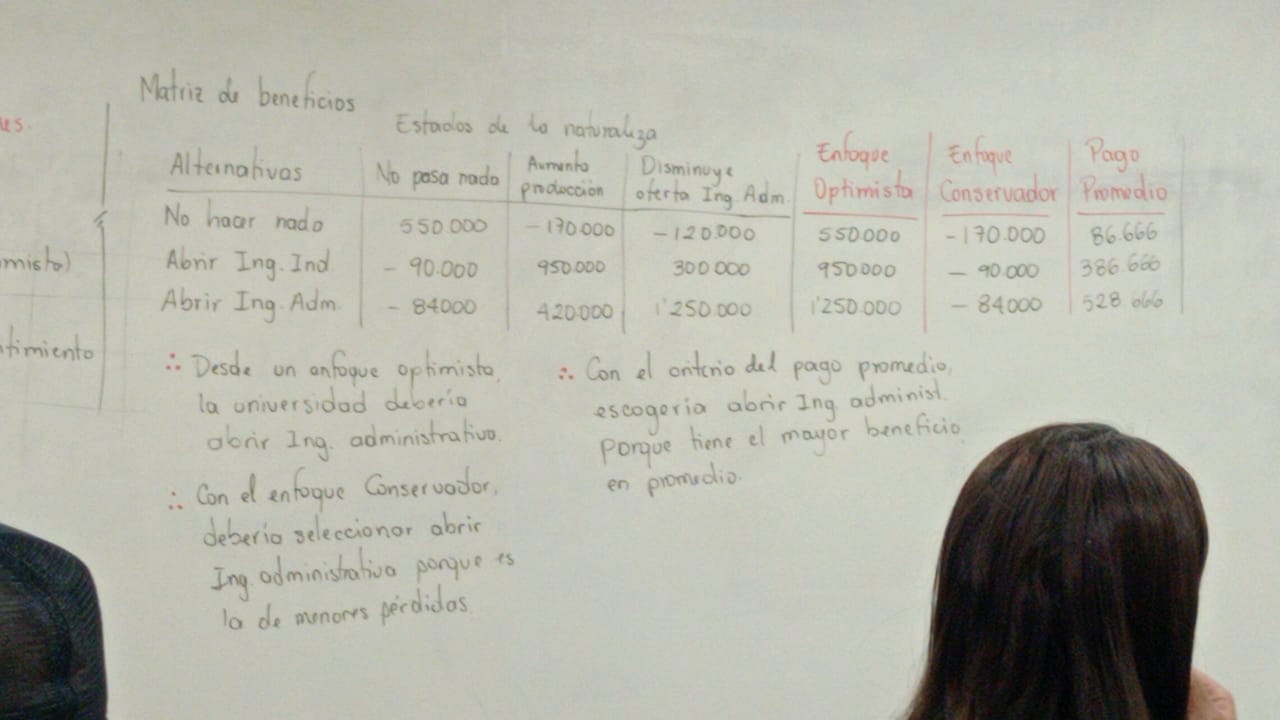 Matriz de beneficios
es.
Estados de la naturaleza
Alternativas No pasa nada Aumenta producción Disminuye oferta Ing. Adm. Enfoque Optimista Enfoque Conservador Pago Promedio
No hacer nada 550.000 -170.000 -120.000 550.000 -170.000 86.666
Abrir Ing. Ind - 90.000 950.000 300.000 950000 - 90.000 386.666
Abrir Ing. Adm. - 84000 420.000 1'250.000 1'250.000 - 84000 528 666
misto)
timiento
∴ Desde un enfoque optimista,
la universidad debería
abrir Ing. administrativa.
∴ Con el enfoque Conservador,
debería seleccionar abrir
Ing. administrativa porque es
la de menores pérdidas.
∴ Con el criterio del pago promedio,
escogería abrir Ing. administ.
Porque tiene el mayor beneficio
en promedio.